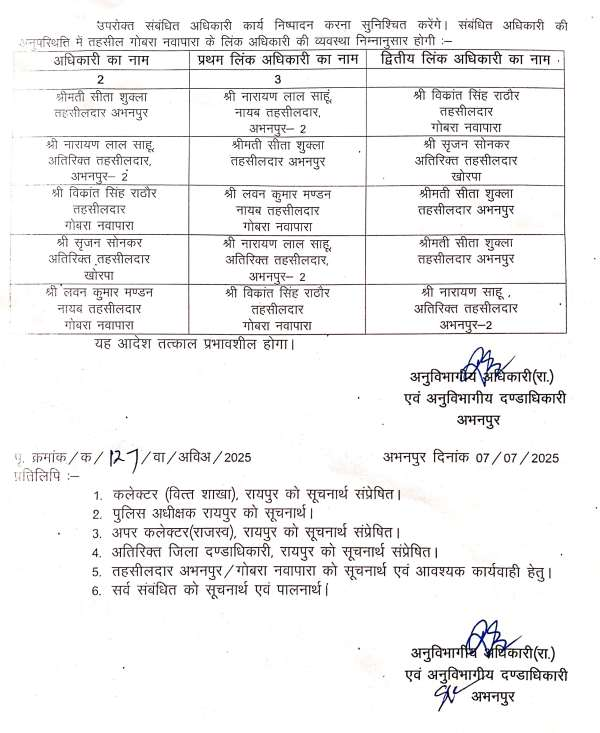 उपरोक्त संबंधित अधिकारी कार्य निष्पादन करना सुनिश्चित करेंगे। संबंधित अधिकारी की
अनुपरिथति में तहसील गोबरा नवापारा के लिंक अधिकारी की व्यवस्था निम्नानुसार होगी :–
अधिकारी का नाम प्रथम लिंक अधिकारी का नाम द्वितीय लिंक अधिकारी का नाम
2 3
श्रीमती सीता शुक्ला श्री नारायण लाल साहूं, श्री विकांत सिंह राठौर
तहसीलदार अभनपुर नायब तहसीलदार, तहसीलदार
अभनपुर– 2 गोबरा नवापारा
श्री नारायण लाल साहू, श्रीमती सीता शुक्ला श्री सृजन सोनकर
अतिरिक्त तहसीलदार, तहसीलदार अभनपुर अतिरिक्त तहसीलदार
अभनपुर– 2 खोरपा
श्री विकांत सिंह राठौर श्री लवन कुमार मण्डन श्रीमती सीता शुक्ला
तहसीलदार नायब तहसीलदार तहसीलदार अभनपुर
गोबरा नवापारा गोबरा नवापारा
श्री सृजन सोनकर श्री नारायण लाल साहू, श्रीमती सीता शुक्ला
अतिरिक्त तहसीलदार अतिरिक्त तहसीलदार, तहसीलदार अभनपुर
खोरपा अभनपुर– 2
श्री लवन कुमार मण्डन श्री विकांत सिंह राठौर श्री नारायण साहू ,
नायब तहसीलदार तहसीलदार अतिरिक्त तहसीलदार
गोबरा नवापारा गोबरा नवापारा अभनपुर–2
यह आदेश तत्काल प्रभावशील होगा।
अनुविभागीय अधिकारी(रा.)
एवं अनुविभागीय दण्डाधिकारी
अभनपुर
पृ. क्रमांक/क/127/वा/अविअ/2025 अभनपुर दिनांक 07/07/2025
प्रतिलिपि :–
1. कलेक्टर (वित्त शाखा), रायपुर को सूचनार्थ संप्रेषित।
2. पुलिस अधीक्षक रायपुर को सूचनार्थ।
3. अपर कलेक्टर(राजस्व), रायपुर को सूचनार्थ संप्रेषित।
4. अतिरिक्त जिला दण्डाधिकारी, रायपुर को सूचनार्थ संप्रेषित।
5. तहसीलदार अभनपुर/गोबरा नवापारा को सूचनार्थ एवं आवश्यक कार्यवाही हेतु।
6. सर्व संबंधित को सूचनार्थ एवं पालनार्थ।
अनुविभागीय अधिकारी(रा.)
एवं अनुविभागीय दण्डाधिकारी
अभनपुर